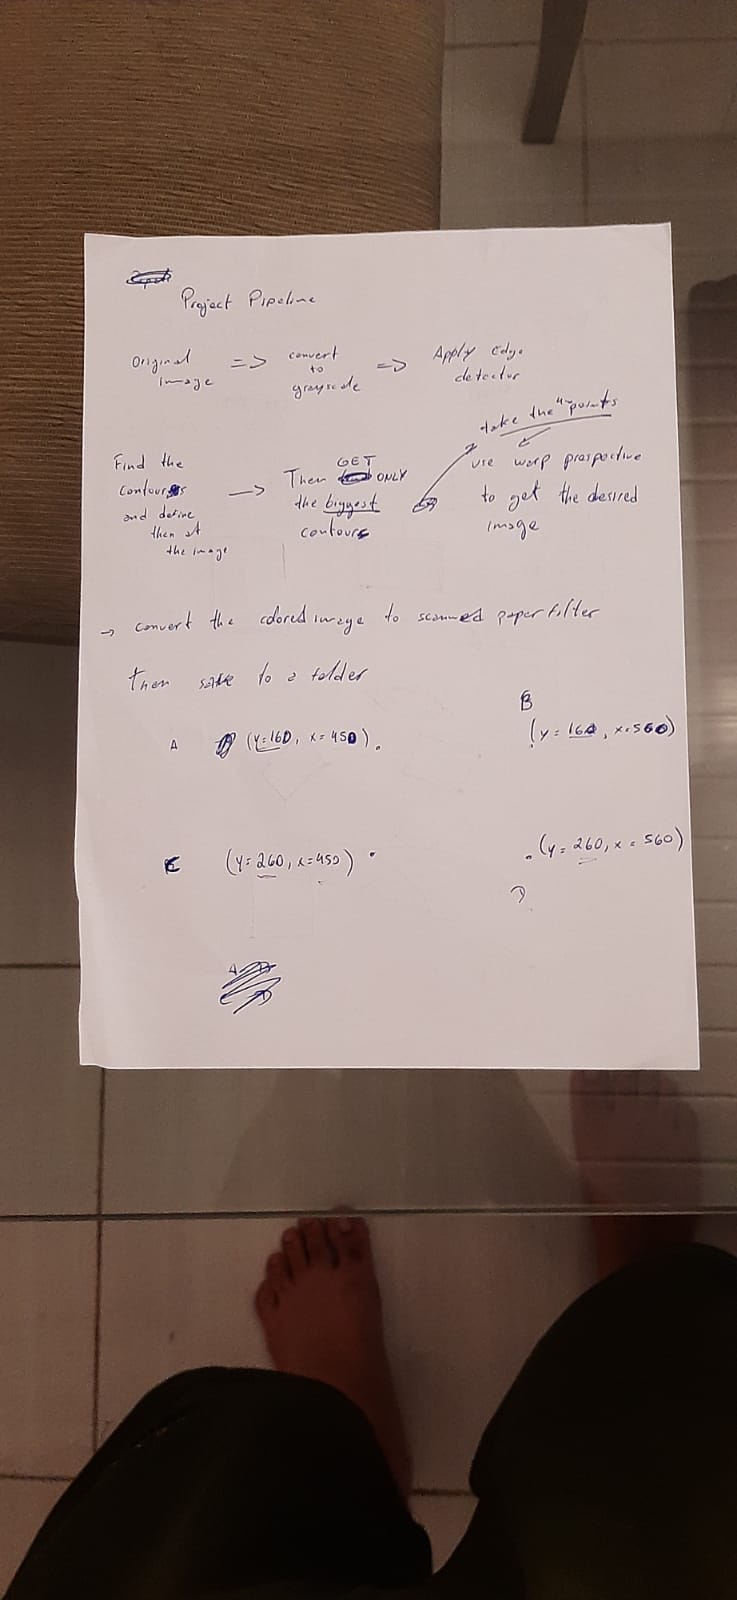 Project Pipeline
Original
image
=>
convert
to
grayscale
=>
Apply Edge
detector
take the 4 points
Find the
contours
and define
then at
the image
->
GET
Then ONLY
the biggest
contours
use worp prespective
to get the desired
image
-> convert the colored image to scanned paper filter
Then save to a folder
A (y=160, x=450).
B
(y=160, x=560)
C (y=260, x=450)
(y=260, x=560)
D